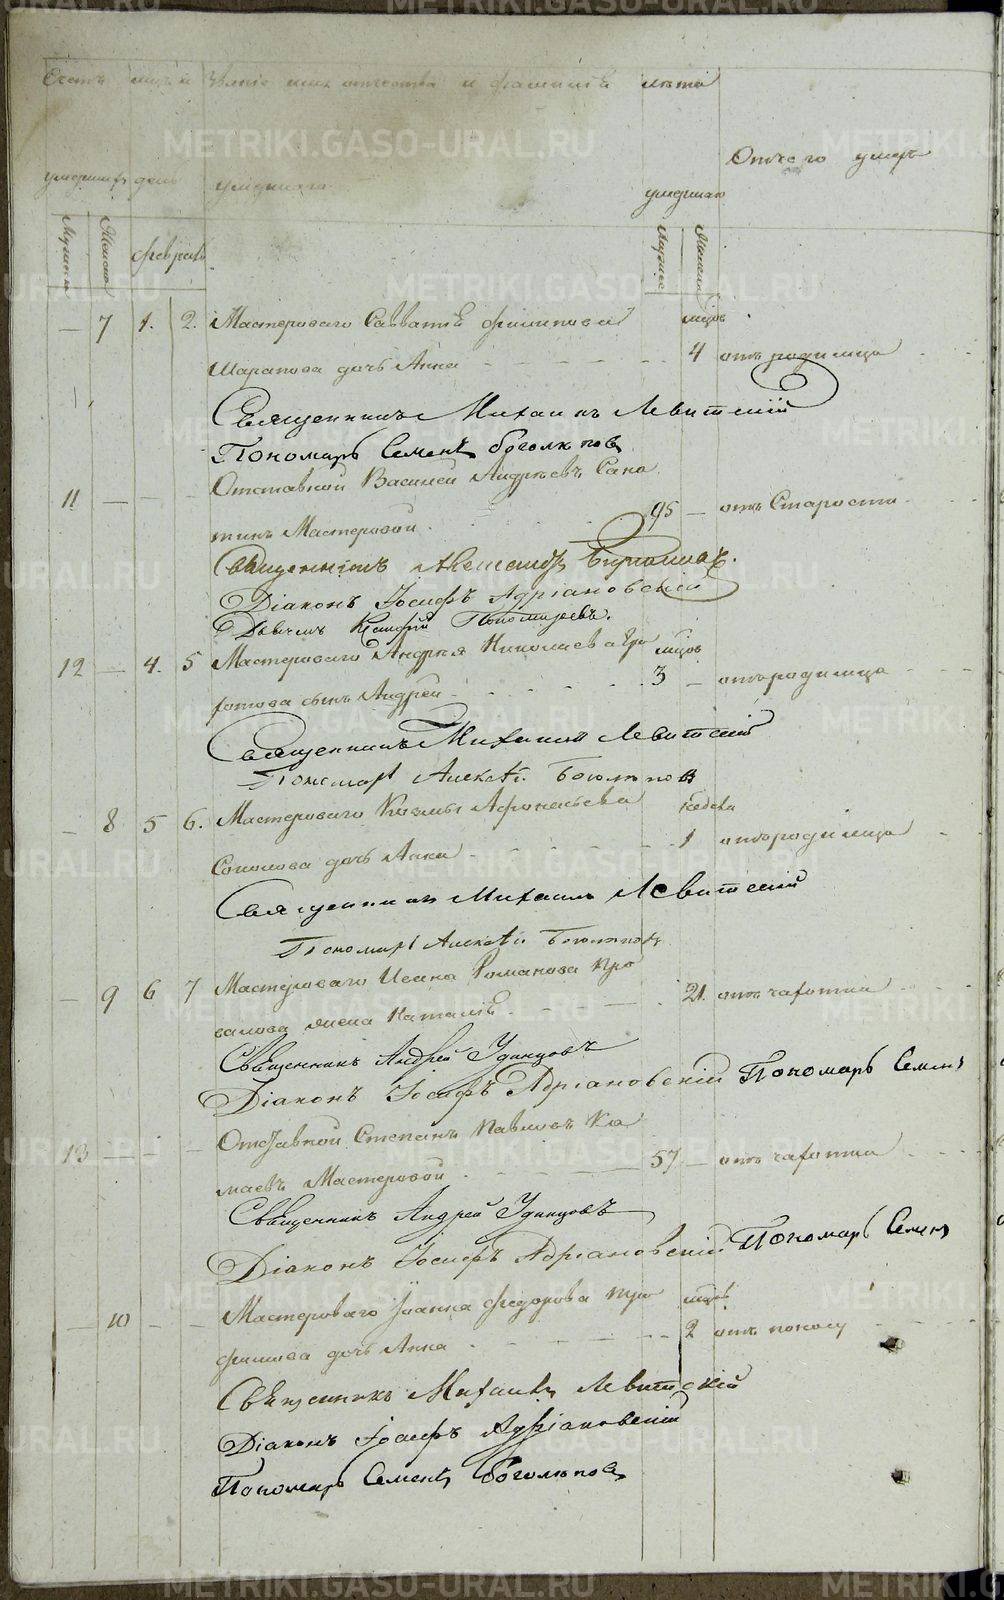 Счетъ
Званіе имя отчество и фамилія
лѣта
Отчего умеръ
умершихъ
день
умершаго
умершаго
Мужеска
Женска
февраль
Мужеска
Женска
7 1. 2. Мастероваго Савватія Филипова
мцов
Шарапова дочь Анна 4 отъ родимца
Священникъ Михаилъ Левитскій
Пономарь Семенъ Боголюпов
Отставной Василей Андреевъ Сапо
11
95 отъ Старости
Мастеровой
Священникъ Александръ
Діаконъ Іосифъ Адріановскій
Дьячекъ Пономаревъ.
12 4. 5 Мастероваго Андрея Николаева
мцов
сынъ Андрей 3 отъ родимца
Священникъ Михаилъ Левитскій
Пономарь Алексѣй Боголюпов
8 5 6. Мастероваго Козмы Афонасьева
неделя
Соколова дочь Анна 1 отъ родимца
Священникъ Михаилъ Левитскій
Пономарь Алексѣй Боголюповъ
9 6 7 Мастероваго Ивана Романова Про
валова жена Наталія 21. отъ чахотки
Священникъ Андрей Удинцовъ
Діаконъ Іосифъ Адріановскій Пономарь Семенъ
Отставной Степанъ Павловъ Ко
13 57 отъ чахотки
маевъ Мастеровой
Священникъ Андрей Удинцовъ
Діаконъ Іосифъ Адріановскій Пономарь Семенъ
10 Мастероваго Іоанна Федорова Тро
мцов
фимова дочь Анна 2 отъ поносу
Священникъ Михаилъ Левитскій
Діаконъ Іосифъ Адріановскій
Пономарь Семенъ Боголюпов
METRIKI.GASO-URAL.RU